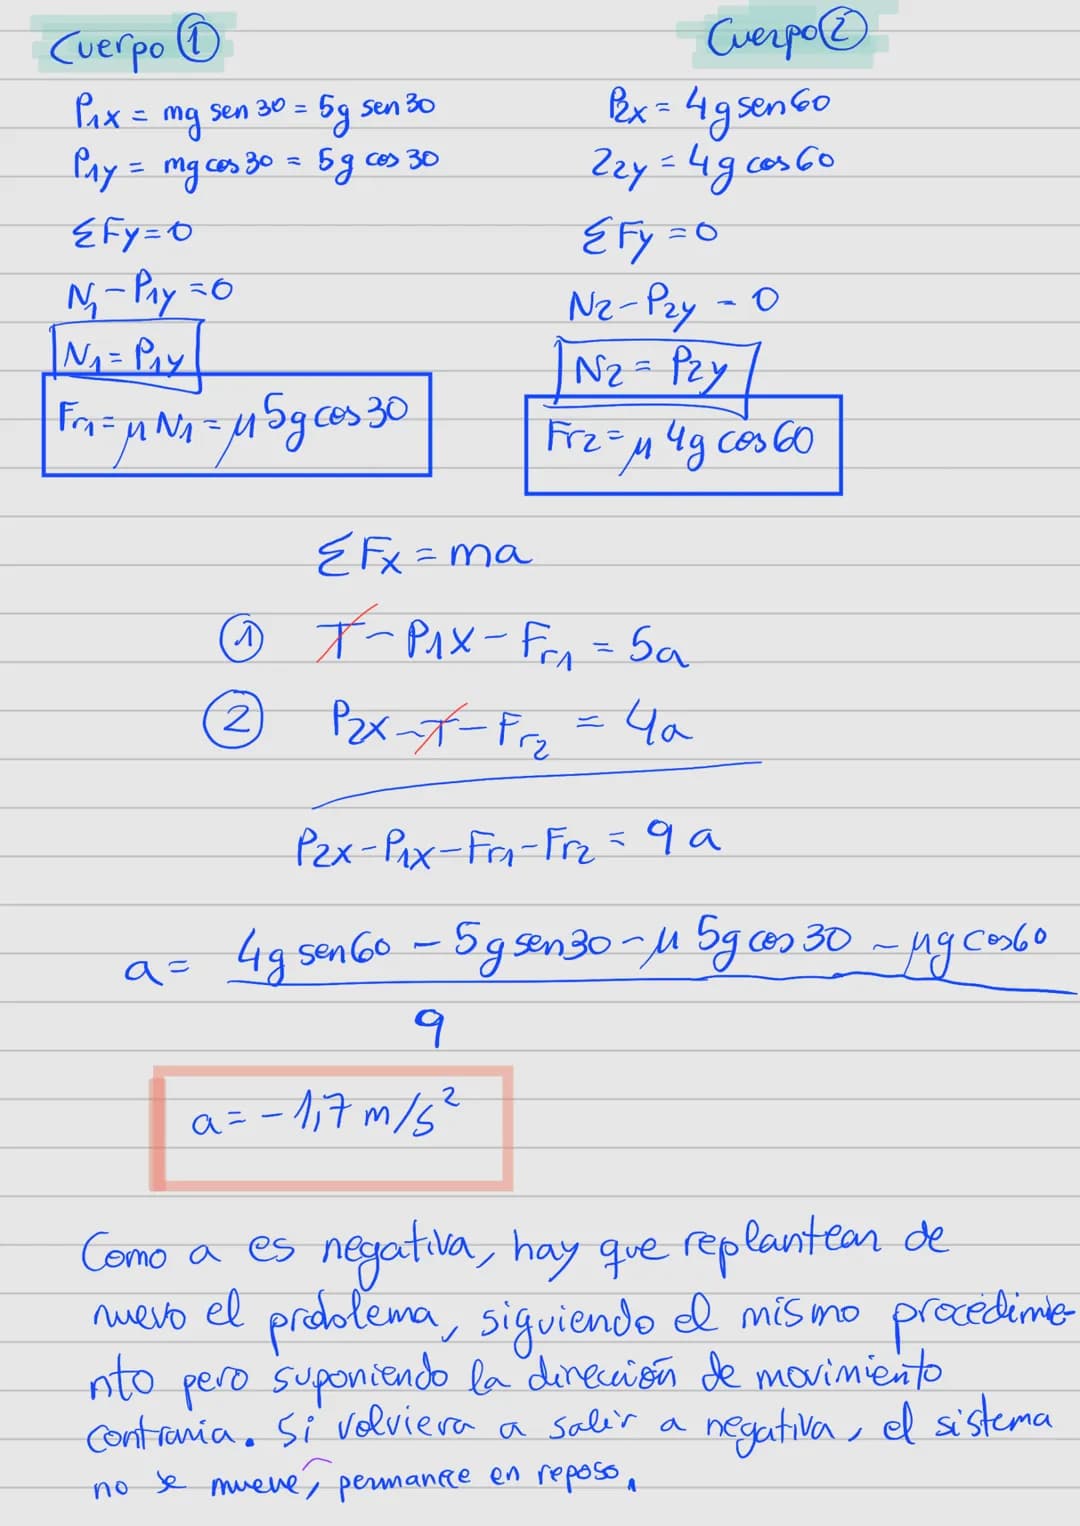 Cuerpo ①
P1x = mg sen 30 = 5g sen 30
P1y = mg cos 30 = 5g cos 30
ΣFy=0
N1-P1y=0
N1=P1y
Fr1=μN1=μ5g cos 30
Cuerpo ②
P2x = 4g sen60
22y = 4g cos60
ΣFy=0
N2-P2y-0
N2=P2y
Fr2=μ4g cos60
ΣFx=ma
① T-P1x-Fr1=5a
② P2x-T-Fr2=4a
P2x-P1x-Fr1-Fr2=9a
a= 4g sen60 - 5g sen30 - μ 5g cos 30 - μg cos60
9
a=-1,7 m/s²
Como a es negativa, hay que replantear de
nuevo el prdolema, siguiendo el mismo procedimie-
nto pero suponiendo la dirección de movimiento
contraria. Si volviera a salir a negativa, el sistema
no se mueve, permanece en reposo.